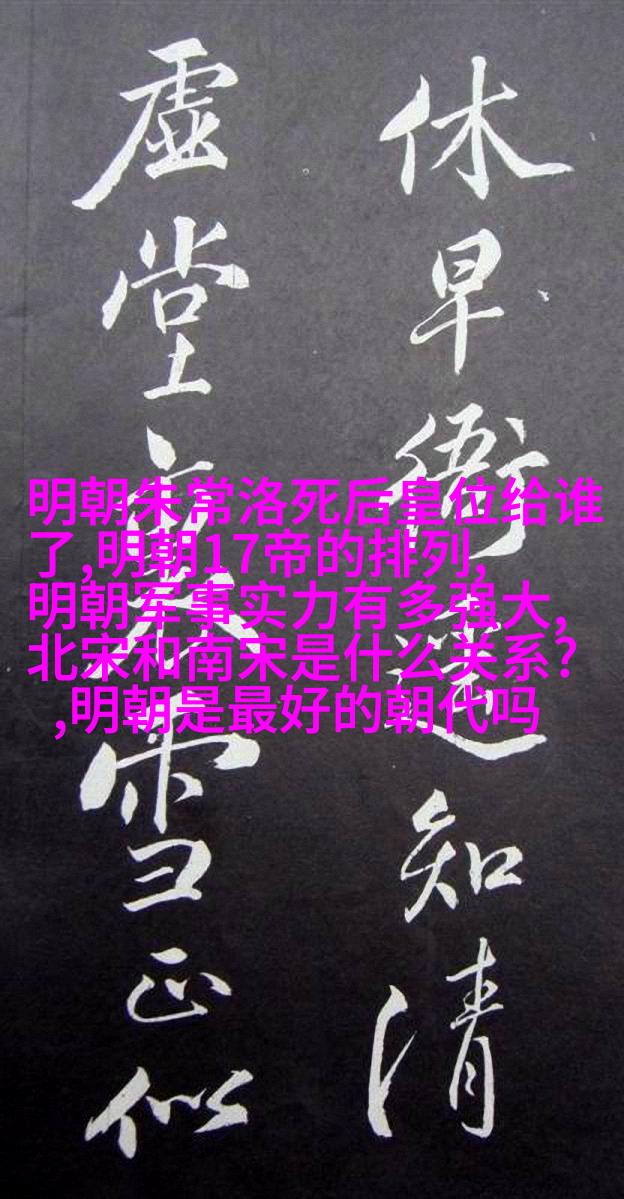 休早衙知清
虚堂雪正似
明朝朱常洛死后皇位给谁
了,明朝17帝的排列,
明朝军事实力有多强大,
北宋和南宋是什么关系?
,明朝是最好的朝代吗